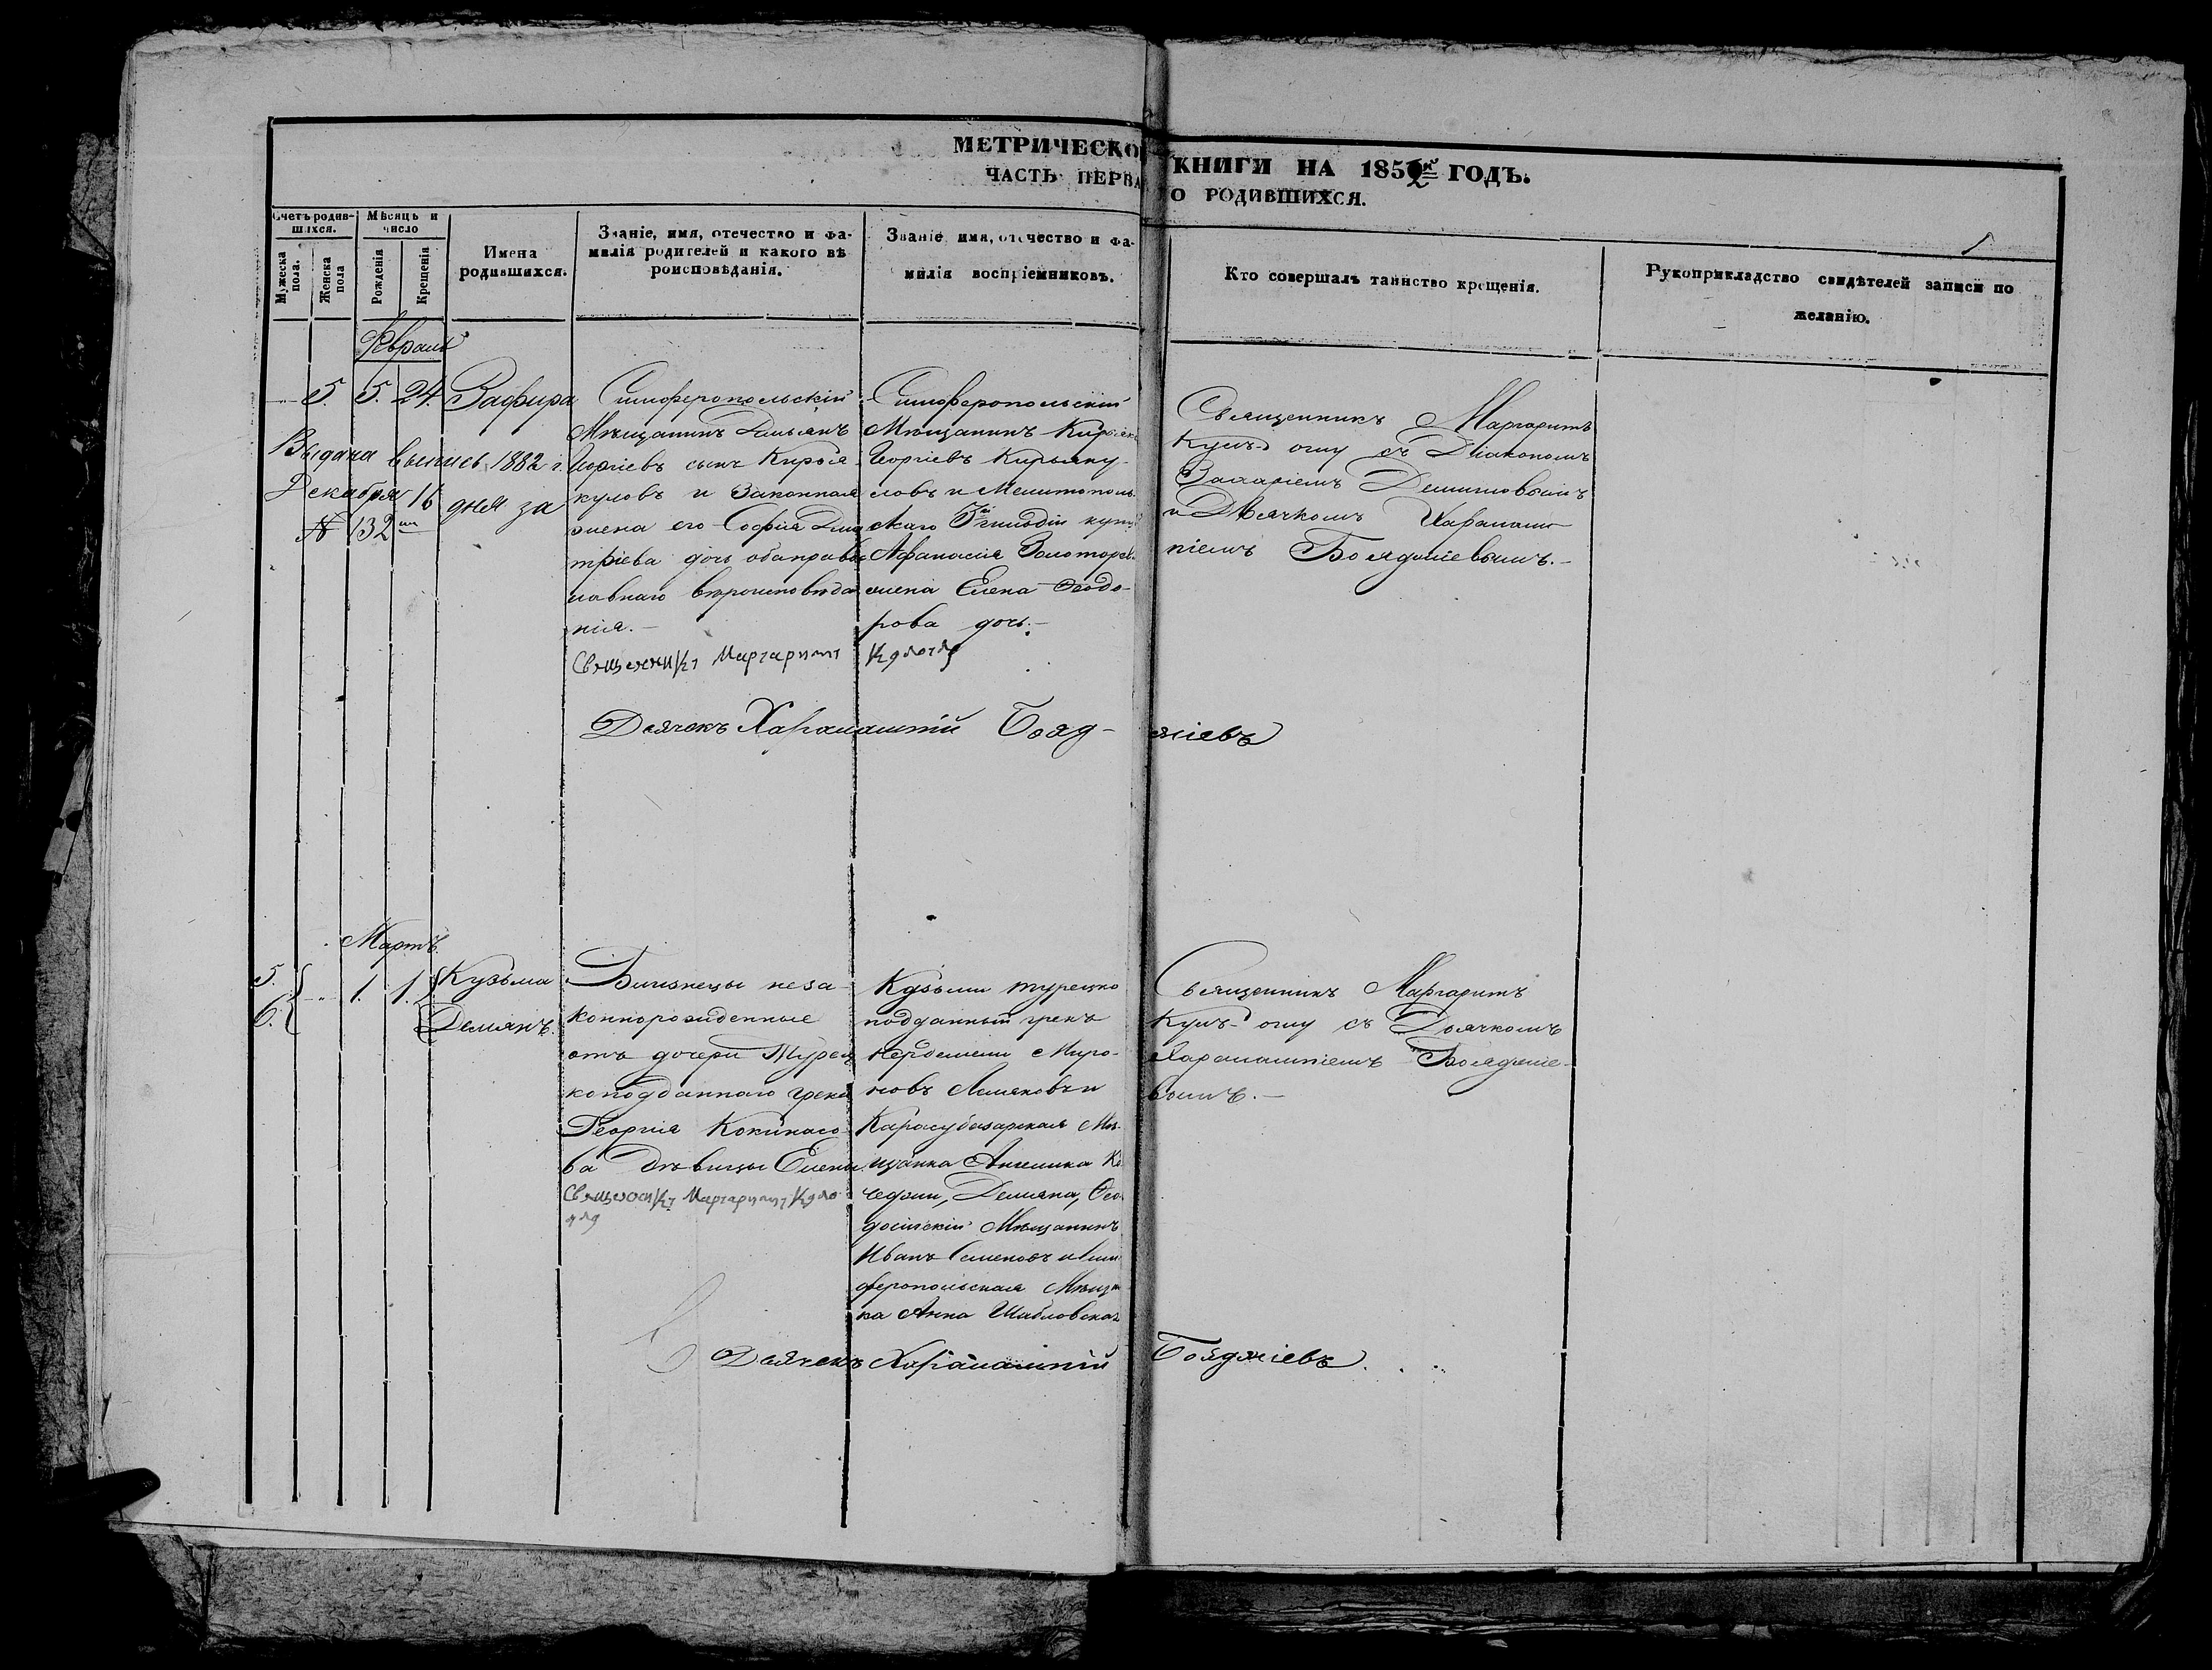 МЕТРИЧЕСКО КНИГИ НА 1852й ГОДЪ.
ЧАСТЬ ПЕРВА О РОДИВШИХСЯ.
1
Счетъ родив-
шихся.
Мужеска пола.
Женска пола
Мѣсяцъ и
число
Рожденія
Крещенія
Имена
родившихся.
Званіе, имя, отечество и фа-
милія родителей и какого вѣ
роисповѣданія.
Званіе имя, отечество и фа-
милія воспріемниковъ.
Кто совершалъ таинство крещенія.
Рукоприкладство свидѣтелей записи по
желанію.
Февраль
5. 5. 24. Зафира
Выдана выпись 1882 г.
Декабря 16 дня за
№ 132
Симферопольскій
Мѣщанинъ Дамьянъ
Георгіевъ сынъ Кирья-
куловъ и Законная
жена его Софія Дми
тріева дочь обаправо
славнаго вѣроисповѣда
нія.-
Священникъ Маргаритъ
Симферопольскій
Мѣщанинъ Кирьяко
Георгіевъ Кирьяку-
ловъ и Мелитополь
скаго 3й гильдіи купц
Афанасія Золоторев
жена Елена Ѳеодо-
рова дочь.-
Священникъ Маргаритъ
Кумъ-оглу съ Діакономъ
Захаріемъ
и Дьячкомъ Харалам-
піемъ Бояджіевымъ.-
Дьячекъ Харалампій Бояд- жіевъ
Мартъ
5. 1. 1. Кузьма
6. Демьянъ.
Близнецы неза-
коннорожденные
отъ дочери Турец
коподданнаго грека
Георгія Кокинасо-
ва Дѣвицы Елены
Священникъ Маргаритъ
Кузьмы турецко
подданный грекъ
Миро-
новъ и
Карасубазарская Мѣ-
щанка Ангелика
Демьяна, Ѳео
досійскій Мѣщанинъ
Иванъ Семеновъ и Сим
феропольская Мѣщан
ка Анна Шабловская
Священникъ Маргаритъ
Кумъ-оглу съ Дьячкомъ
Харалампіемъ Бояджіе-
вымъ.-
Дьячекъ Харалампій Бояджіевъ.